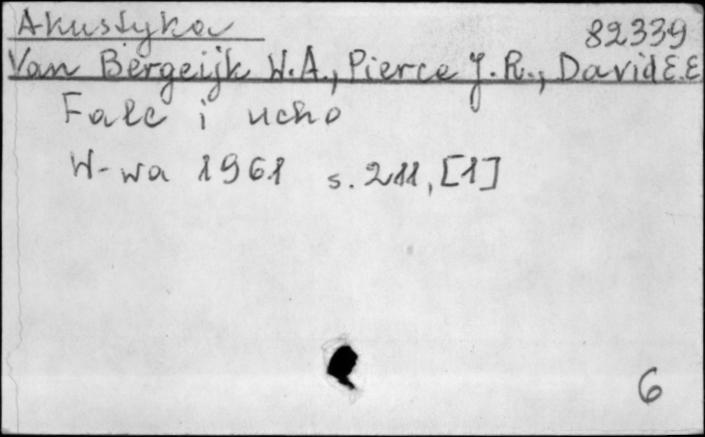 Akustyka 82339
Van Bergeijk W.A., Pierce J.R., David E.E.
Fale i ucho
W-wa 1961 s. 211, [1]
6